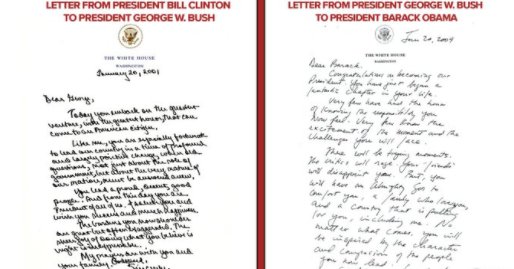 LETTER FROM PRESIDENT BILL CLINTON
TO PRESIDENT GEORGE W. BUSH
THE WHITE HOUSE
WASHINGTON
January 20, 2001
Dear George,
Today you embark on the greatest
venture, with the greatest honor, that can
come to an American citizen.
Like me, you are especially fortunate
to lead our country in a time of profound
and largely positive change, when old
questions, not just about the role of
government, but about the very nature of
our nation, must be answered anew.
You lead a proud, decent, good
people. And from this day you are
President of all of us. I salute you and
wish you success and much happiness.
The burdens you now shoulder
are great but often exaggerated. The
sheer joy of doing what you believe is
right is inexpressible.
My prayers are with you and
your family. Godspeed.
Sincerely,
LETTER FROM PRESIDENT GEORGE W. BUSH
TO PRESIDENT BARACK OBAMA
Jan 20, 2009
THE WHITE HOUSE
WASHINGTON
Dear Barack,
Congratulations on becoming our
President. You have just begun a
fantastic chapter in your life.
Very few have had the honor
of knowing the responsibility you
now feel. Very few know the
excitement of the moment and the
challenges you will face.
There will be trying moments.
The critics will rage. Your "friends"
will disappoint you. But, you
will have an Almighty God to
comfort you, a family who loves you,
and a country that is pulling
for you, including me. No
matter what comes, you will
be inspired by the character
and compassion of the people
you now lead.